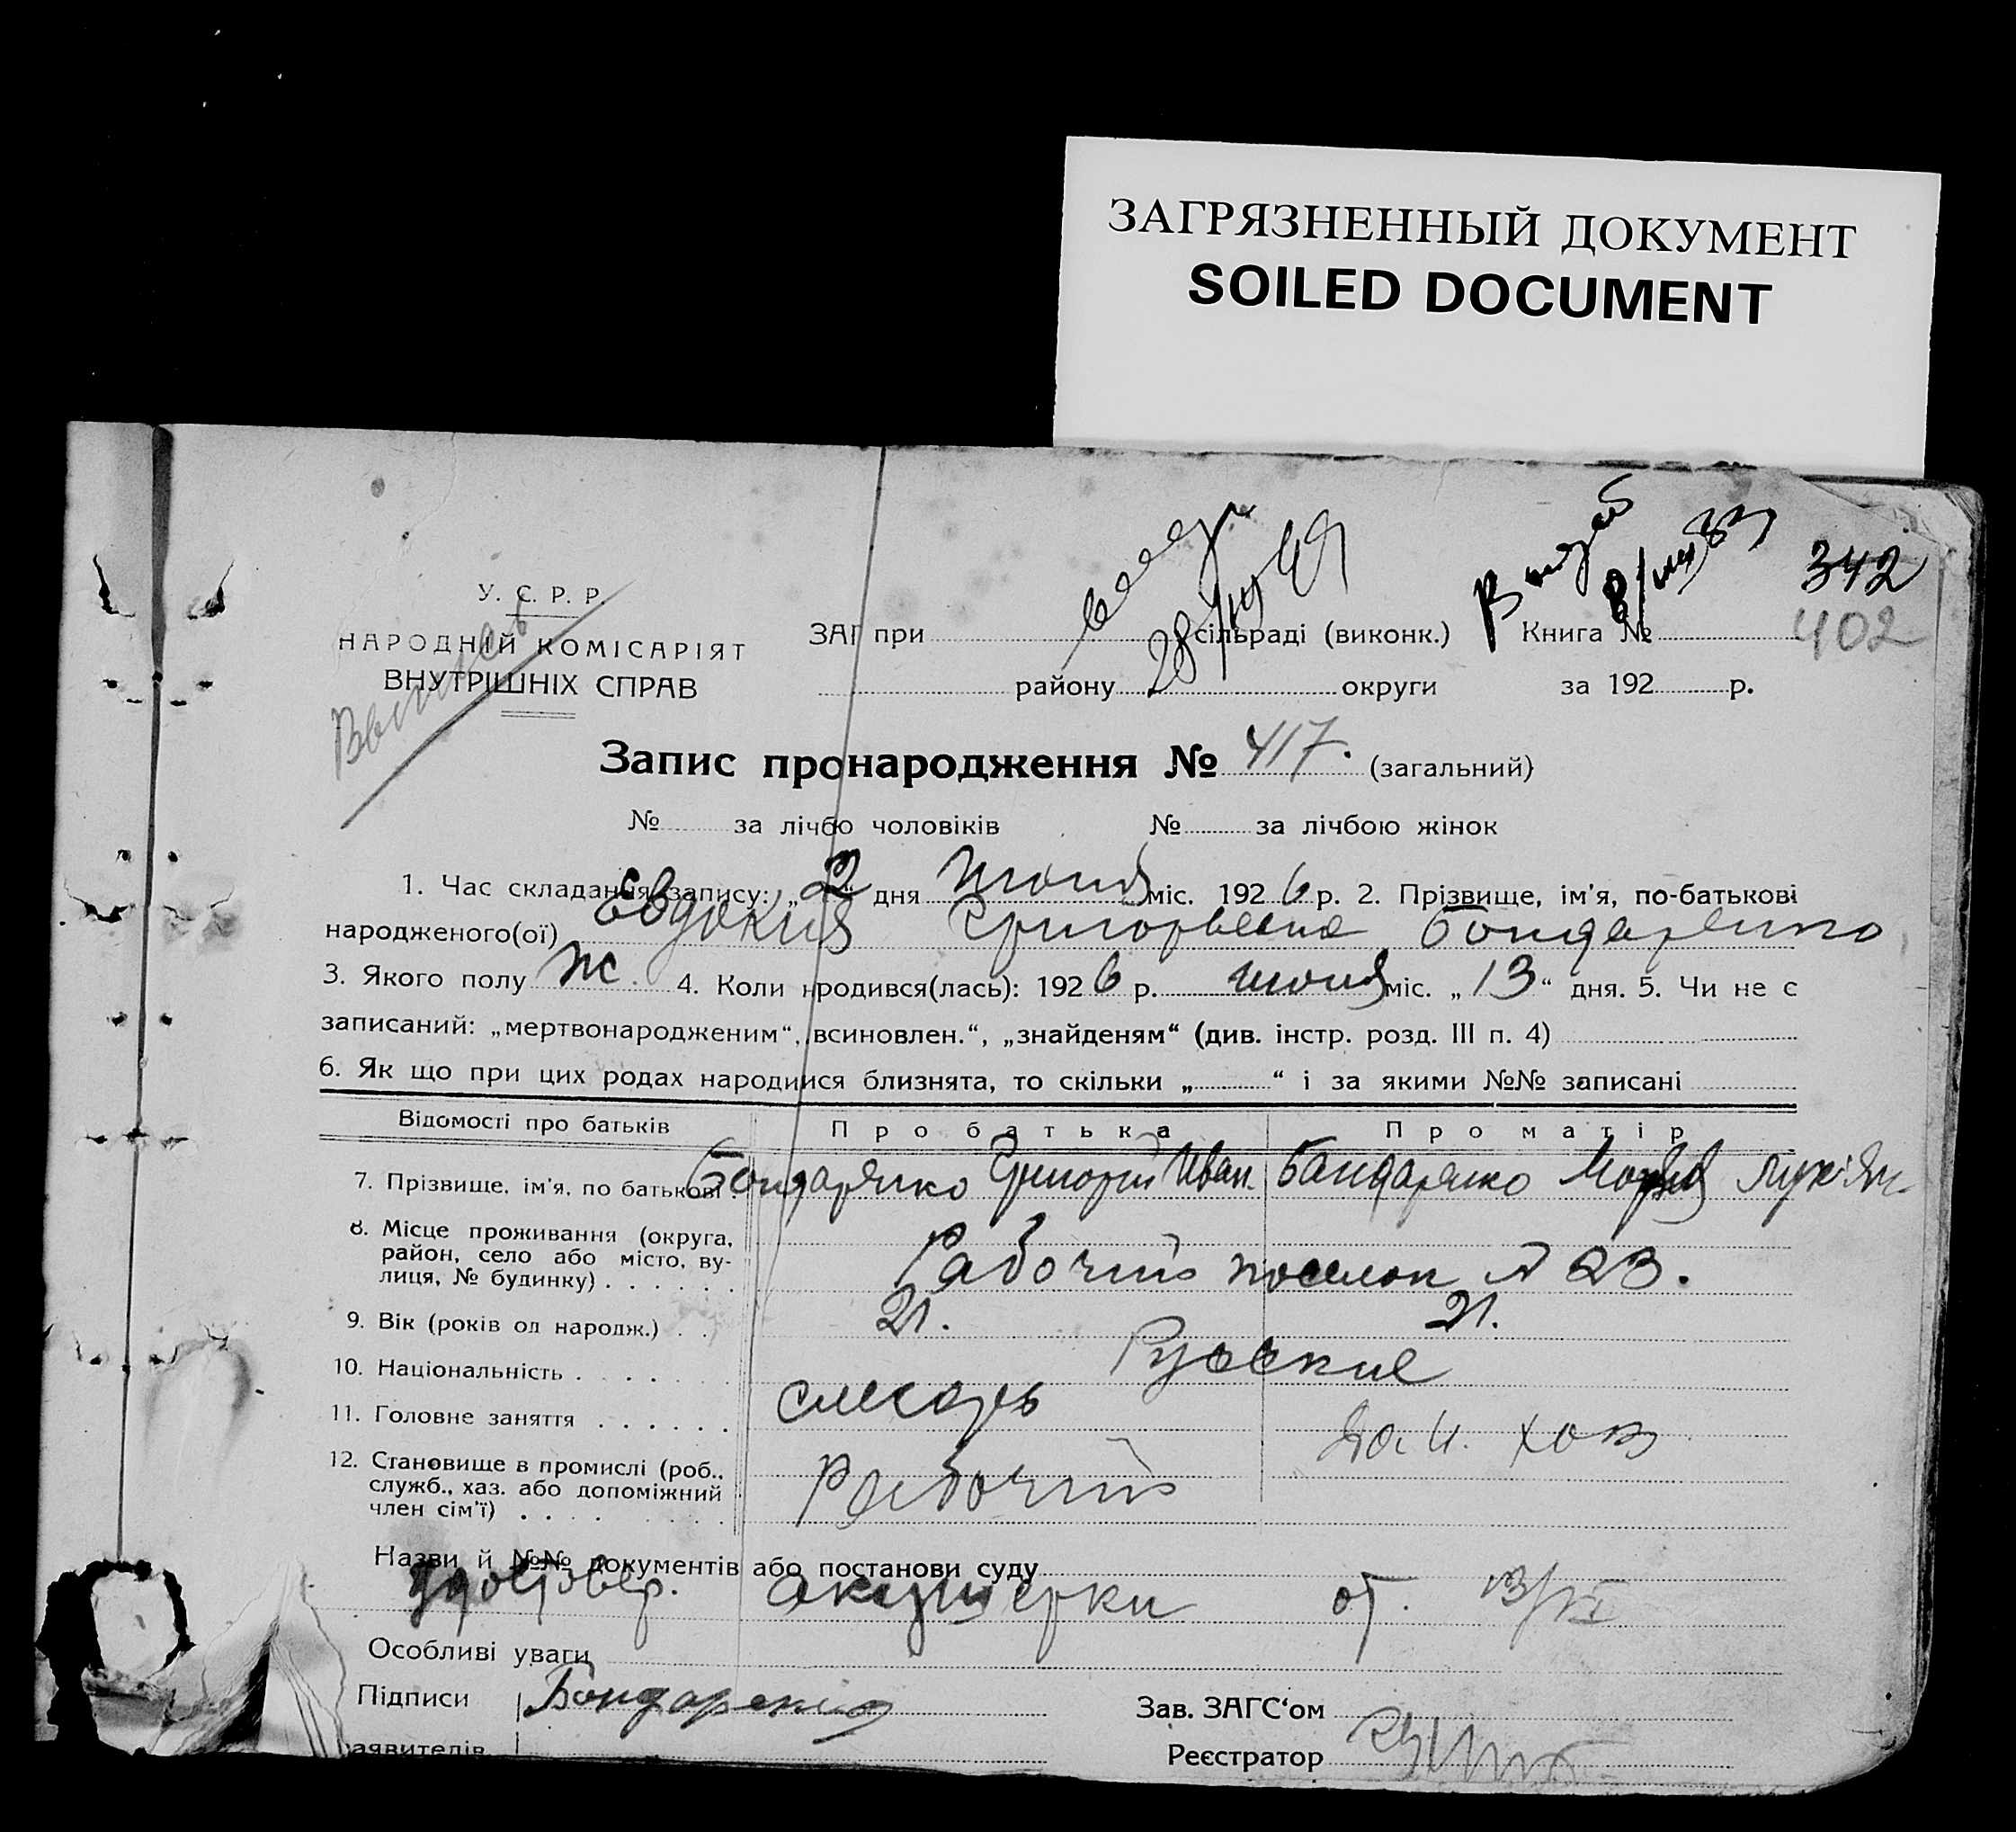 ЗАГРЯЗНЕННЫЙ ДОКУМЕНТ
SOILED DOCUMENT
342
402
У. С. Р. Р.
НАРОДНІЙ КОМІСАРІЯТ
ВНУТРІШНІХ СПРАВ
ЗАГ при сільраді (виконк.) Книга №
району округи за 192 р.
Запис про народження № 417. (загальний)
№ за лічбо чоловіків № за лічбою жінок
1. Час складання запису: „2“ дня июля міс. 1926 р. 2. Прізвище, ім'я, по-батькові
народженого(ої) Евдокия Григорьевна Бондаренко
3. Якого полу ж. 4. Коли народився(лась): 1926 р. июня міс. „13“ дня. 5. Чи не є
записаний: „мертвонародженим“, всиновлен.“, „знайденям“ (див. інстр. розд. III п. 4)
6. Як що при цих родах народилися близнята, то скільки „ “ і за якими №№ записані
Відомості про батьків Про батька Про матір
7. Прізвище, ім'я, по батькові Бондаренко Григорий Иван. Бондаренко Мария Лук'ян.
8. Місце проживання (округа,
район, село або місто, ву-
лиця, № будинку) Рабочий поселок № 23.
9. Вік (років од народж.) 21. 21.
10. Національність Русские
11. Головне заняття слесарь дом. хоз
12. Становище в промислі (роб.,
служб., хаз. або допоміжний
член сім'ї) Рабочий
Назви й №№ документів або постанови суду
Удостовер. акушерки от. 13/VI
Особливі уваги
Підписи Бондаренко Зав. ЗАГС'ом
заявителів Реєстратор